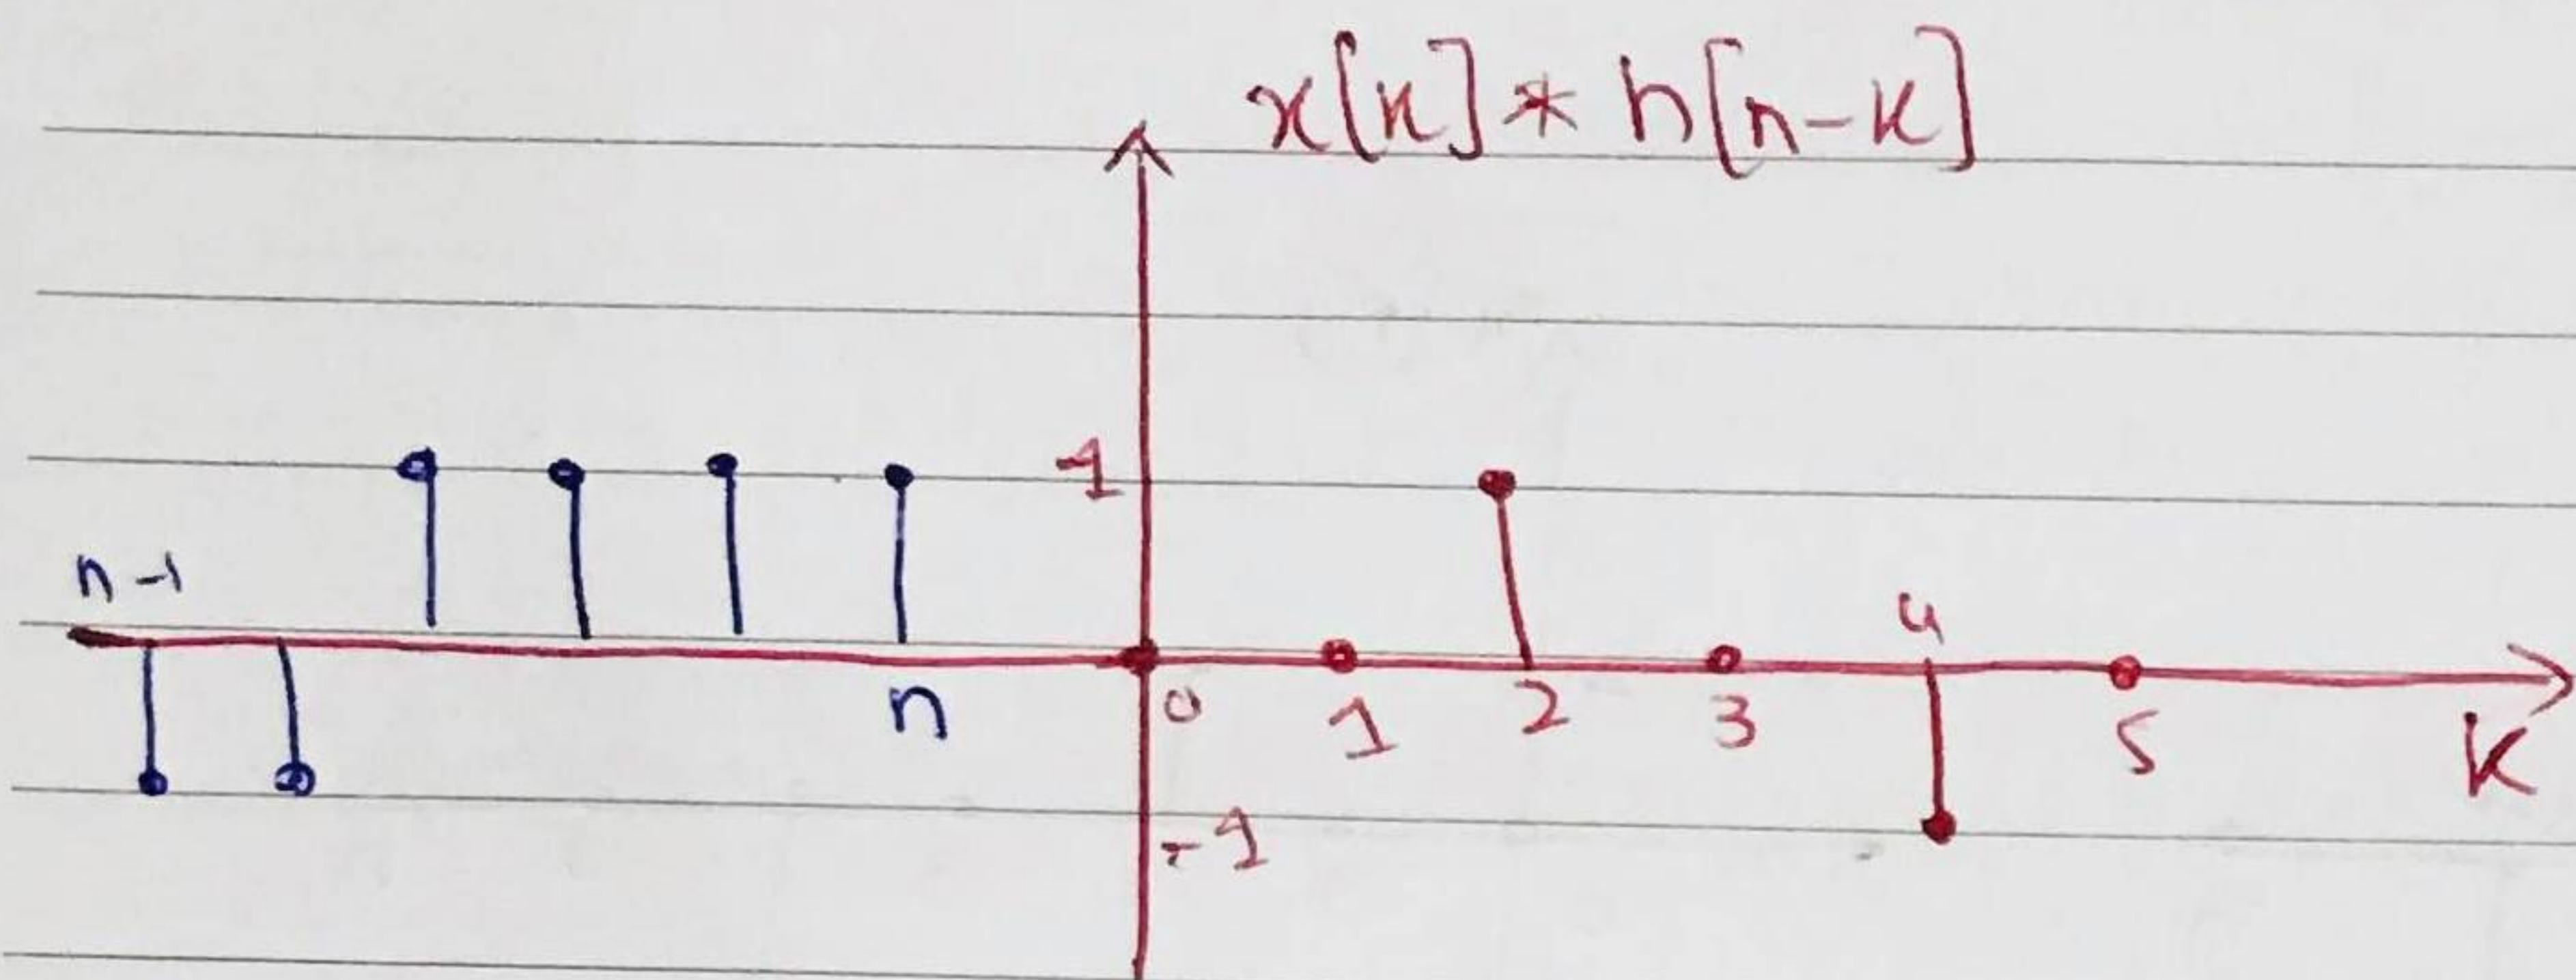 x[k] * h[n-k]
1
n-1
4
n
0
1
2
3
5
k
-1